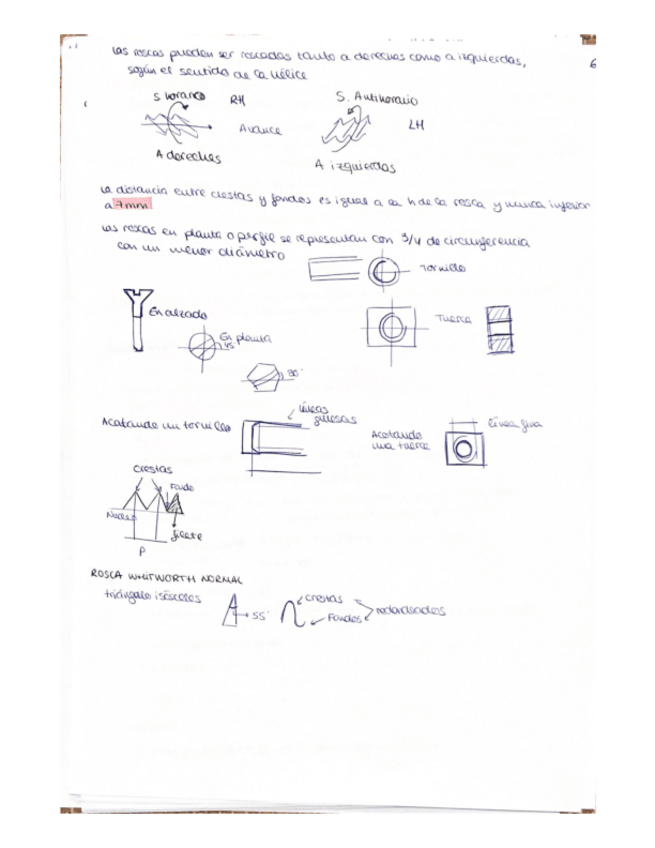 Las roscas pueden ser roscadas tanto a derechas como a izquierdas,
según el sentido de la hélice
6
S horario RH
S. Antihorario
Avance
LH
A derechas
A izquierdas
La distancia entre crestas y fondos es igual a la h de la rosca y nunca inferior
a 7mm
Las roscas en planta o perfil se representan con 3/4 de circunferencia
con un menor diámetro
Tornillo
En alzado
Tuerca
En planta
45°
30°
líneas
gruesas
Acotando un tornillo
línea fina
Acotando
una tuerca
crestas
Fondo
Núcleo
filete
P
ROSCA WHITWORTH NORMAL
triángulo isósceles
55°
crestas
Fondos
redondeados